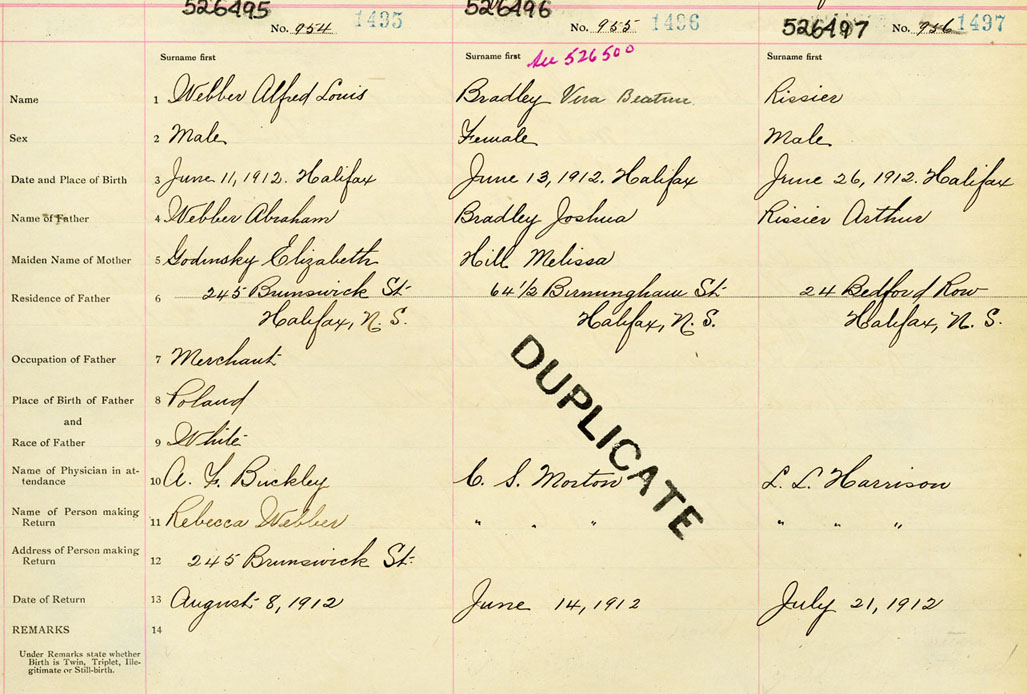 526495 526496 526497
No. 954 1495 No. 955 1496 No. 956 1497
Surname first Surname first See 526500 Surname first
Name 1 Webber Alfred Louis Bradley Vera Beatrice Rissier
Sex 2 Male Female Male
Date and Place of Birth 3 June 11, 1912. Halifax June 13, 1912. Halifax June 26, 1912. Halifax
Name of Father 4 Webber Abraham Bradley Joshua Rissier Arthur
Maiden Name of Mother 5 Godinsky Elizabeth Hill Melissa
Residence of Father 6 245 Brunswick St. 64 1/2 Birmingham St. 24 Bedford Row
Halifax, N. S. Halifax, N. S. Halifax, N. S.
DUPLICATE
Occupation of Father 7 Merchant
Place of Birth of Father 8 Poland
and
Race of Father 9 White
Name of Physician in at-
tendance 10 A. F. Buckley C. S. Morton L. L. Harrison
Name of Person making
Return 11 Rebecca Webber " " " " " "
Address of Person making
Return 12 245 Brunswick St.
Date of Return 13 August 8, 1912 June 14, 1912 July 21, 1912
REMARKS 14
Under Remarks state whether
Birth is Twin, Triplet, Ille-
gitimate or Still-birth.